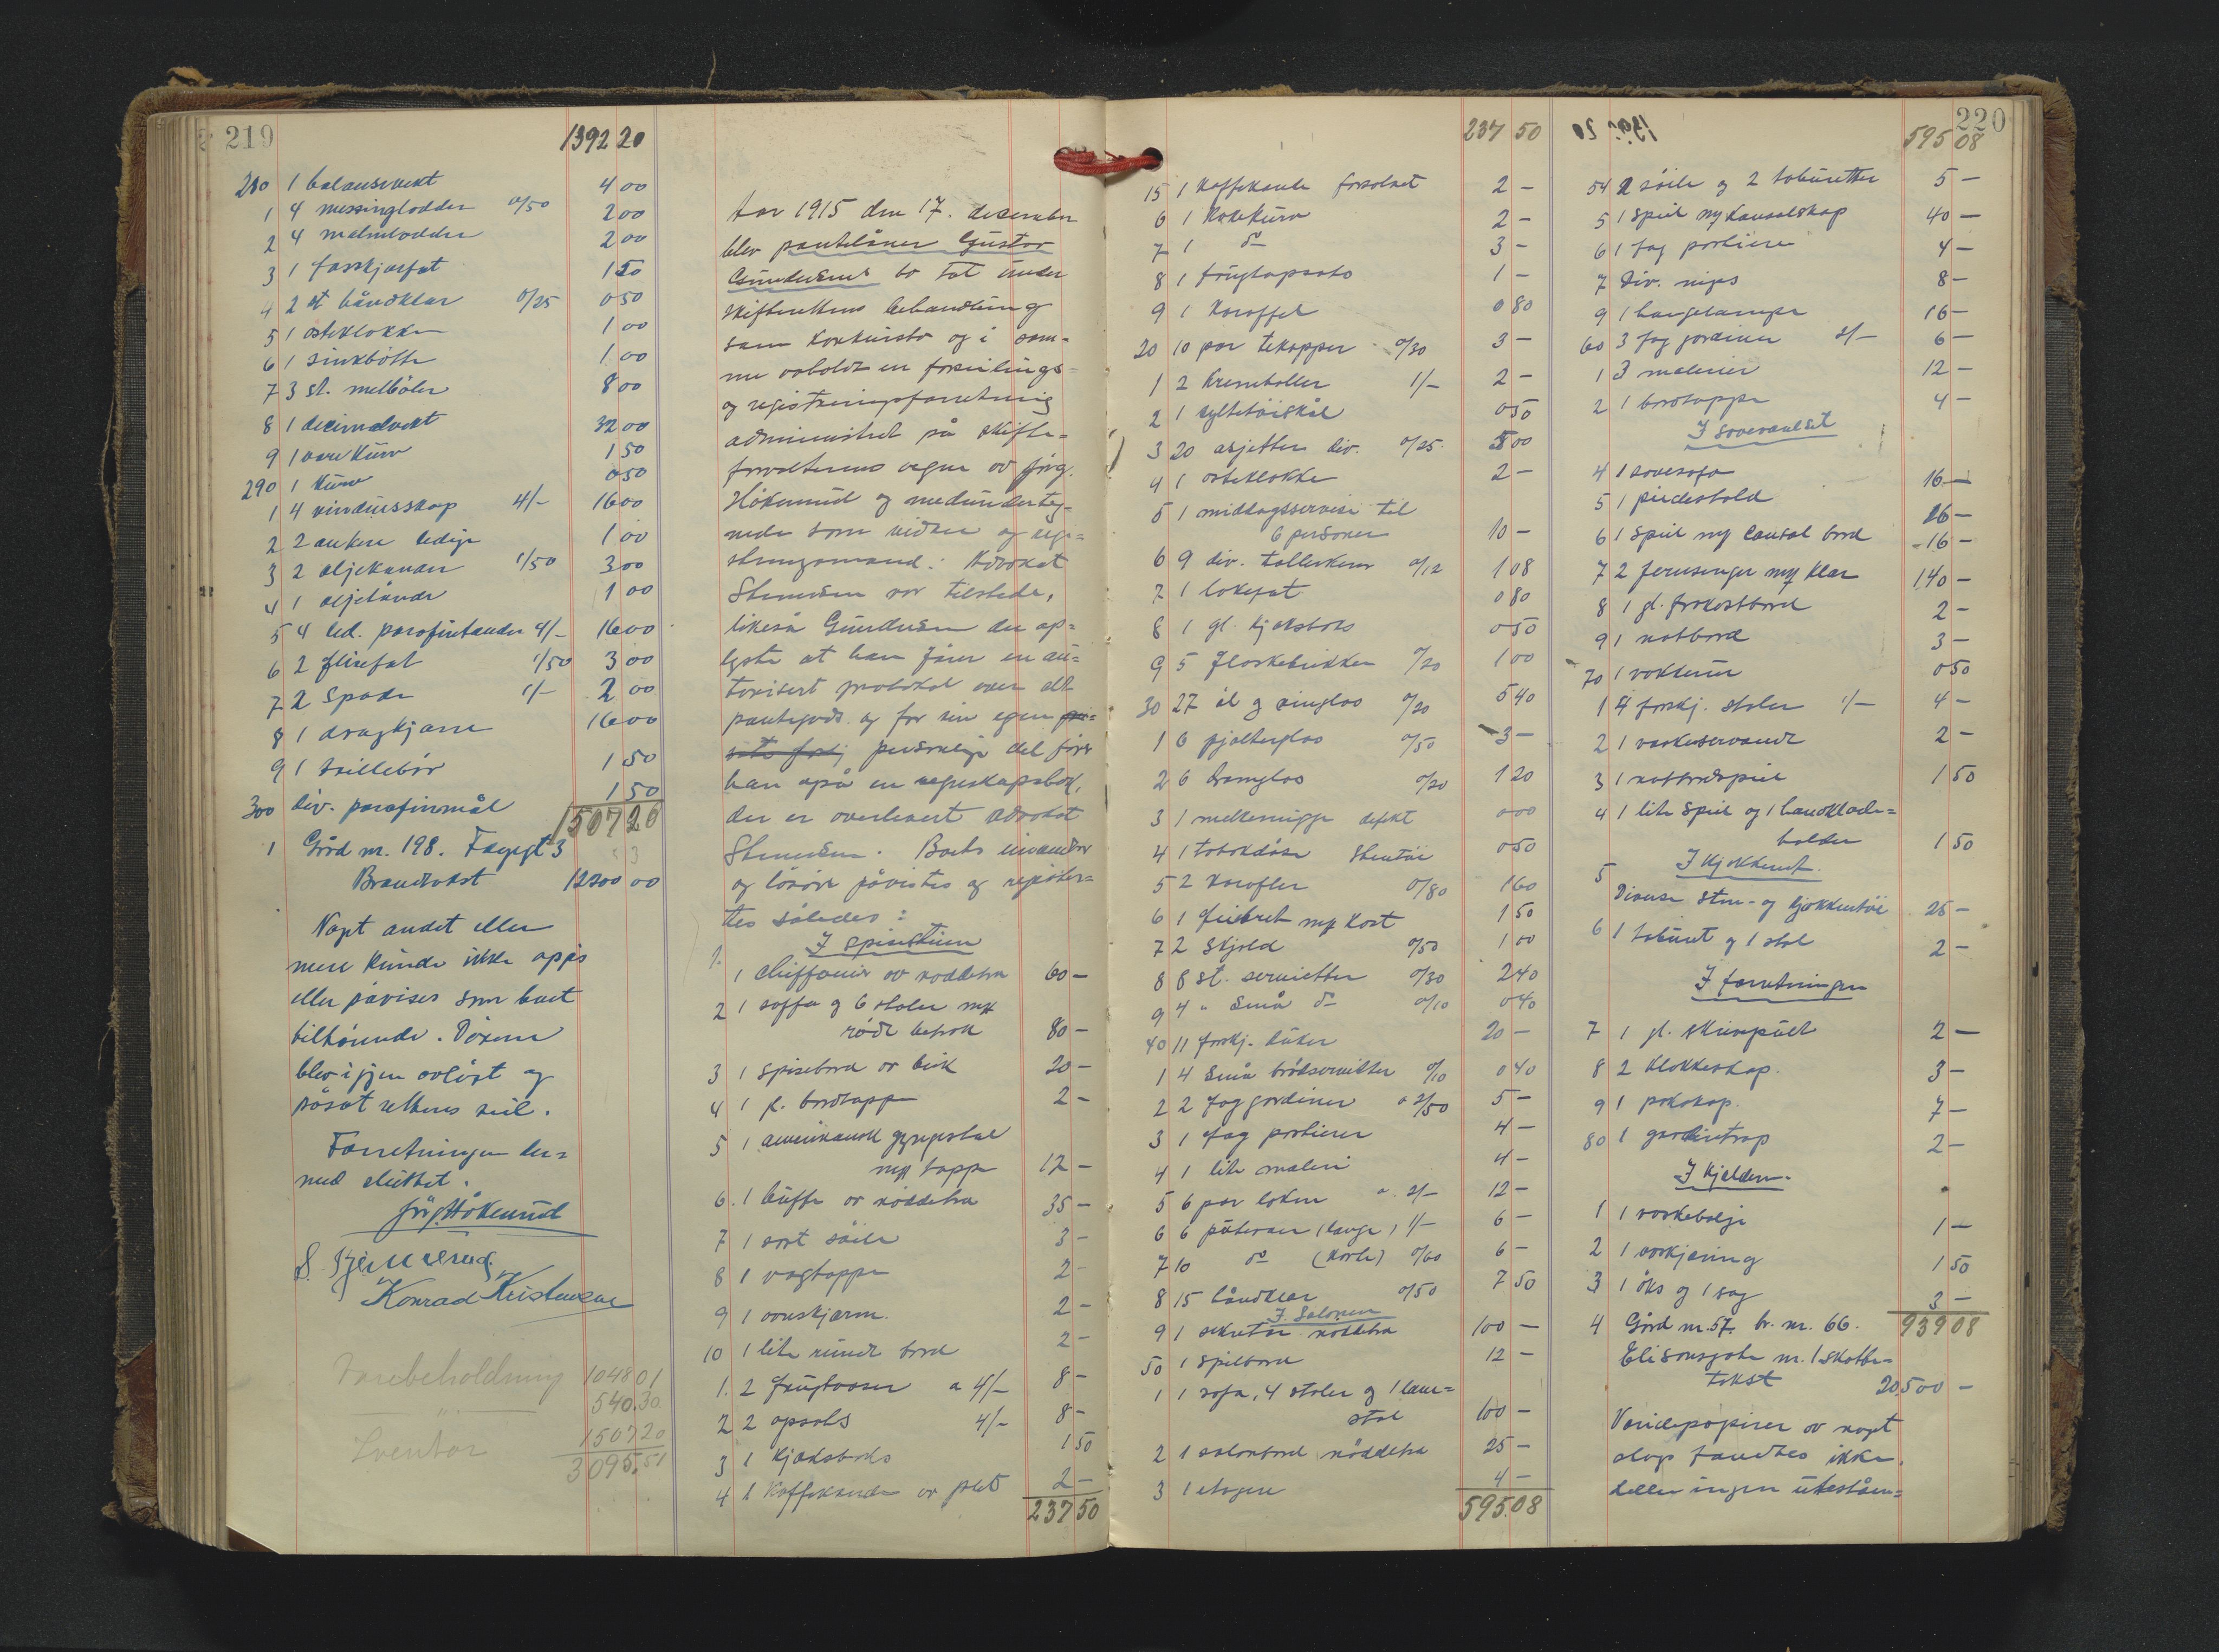 219
1392 20
280 1 balansevekt 4 00
1 4 messinglodder 0/50 2 00
2 4 malmlodder 2 00
3 1 1 50
4 2 st håndklær 0/25 0 50
5 1 osteklokke 1 00
6 1 sinkbøtte 1 00
7 3 st. melbøler 8 00
8 1 decimalvekt 32 00
9 1 vare kurv 1 50
290 1 kurv 0 50
1 4 vindusskap 4/- 16 00
2 2 ankere ledige 1 00
3 2 oljekander 1/50 3 00
4 1 oljetønde 1 00
5 4 led. parafintønder 4/- 16 00
6 2 flisefat 1/50 3 00
7 2 spader 1/- 2 00
8 1 dragkjærre 16 00
9 1 trillebør 1 50
300 div. parafinmål 1 50
1507 20
1 Gård nr. 198. Faggt 3
Brandtakst 12200 00
Noget andet eller
mere kunde ikke opgis
eller påvises som boet
tilhørende. Døren
blev igjen avlåst og
påsat rettens seil.
Forretningen her=
med sluttet.
Jørg. Håkerud
Konrad Kristensen
Varebeholdning 1048 01
" 540.30
Iventar 1507 20
3095.51
Aar 1915 den 17. december
blev pantelåner Gustav
Gundersens bo tat under
skifterettens behandling
som konkursbo og i sam-
me avholdt en forseilings-
og registreringsforretning
administrert på skifte=
forvalterens vegne av Jørg.
Håkerud og medunderteg-
nede som vidner og regi=
streringsmænd. Advokat
Stenersen var tilstede,
likeså Gundersen der op=
lyste at han fører en au=
torisert protokol over alt
pantegods og for sin egen pri=
personlige del fører
han også en regnskapsbok,
der er overlevert advokat
Stenersen. Boets eiendom
og løsøre påvistes og registrer=
tes således:
I spisestuen
1. 1 chiffonier av nøddetra 60 -
2 1 soffa og 6 stoler med
rødt betræk 80 -
3 1 spisebord av birk 20 -
4 1 gl. bordteppe 2 -
5 1 amerikansk gyngestol
med teppe 12 -
6. 1 buffe av nøddetra 35 -
7 1 sort søile 3 -
8 1 vægteppe 2 -
9 1 ovnskjærm 2 -
10 1 lite rundt bord 2 -
1. 2 frugtvaser a 4/- 8 -
2 2 opsats 4/- 8 -
3 1 kjæksboks 1 50
4 1 kaffekande av plet 2 -
237 50
237 50
15 1 kaffekande forsølvet 2 -
6 1 kakekurv 2 -
7 1 do 3 -
8 1 frugtopsats 1 -
9 1 karaffel 0 80
20 10 par tekopper 0/30 3 -
1 2 kremboller 1/- 2 -
2 1 syltetøiskål 0 50
3 20 asjetter div. 0/25. 5 00
4 1 osteklokke 2 -
5 1 middagsservise til
6 personer 10 -
6 9 div. tallerkener 0/12 1 08
7 1 kakefat 0 80
8 1 gl. kjæksboks 0 50
9 5 flaskebrikker 0/20 1 00
30 27 øl og vinglas 0/20 5 40
1 6 pjolterglas 0/50 3 -
2 6 dramglas 0/20 1 20
3 1 melkemugge defekt 0 00
4 1 tobakdåse stentøi 0 50
5 2 karafler 0/80 1 60
6 1 med kost 1 50
7 2 skjold 0/50 1 00
8 8 st. servietter 0/30 2 40
9 4 " små do 0/10 0 40
40 11 forskj. duker 20 -
1 4 små brødservietter 0/10 0 40
2 2 fag gardiner a 2/50 5 -
3 1 fag portierer 4 -
4 1 lite maleri 4 -
5 6 par laken a. 2/- 12 -
6 6 putevar (lange) 1/- 6 -
7 10 do (korte) 0/60 6 -
8 15 håndklær 0/50 7 50
I Salonen
9 1 sekretær nøddetra 100 -
50 1 spilbord 12 -
1 1 sofa, 4 stoler og 1 læne=
stol 100 -
2 1 salonbord nøddetra 25 -
3 1 etagere 4 -
595.08
220
595 08
54 2 søiler og 2 taburetter 5 -
5 1 speil med konsolskap 40 -
6 1 fag portierer 4 -
7 Div. nips 8 -
9 1 hængelampe 16 -
60 3 fag gardiner 2/- 6 -
1 3 malerier 12 -
2 1 bordteppe 4 -
I soveværelset
4 1 sovesofa 16 -
5 1 16 -
6 1 speil med consol bord 16 -
7 2 jernsenger med klær 140 -
8 1 gl. frokostbord 2 -
9 1 natbord 3 -
70 1 0 50
1 4 forskj. stoler 1/- 4 -
2 1 vaskeservandt 2 -
3 1 1 50
4 1 lite speil og 1 handklæde=
holder 1 50
I kjøkkenet.
5 Diverse sten- og kjøkkentøi 25 -
6 1 taburet og 1 stol 2 -
I forretningen
7 1 gl. skrivepult 2 -
8 2 klokkeskap. 3 -
9 1 7 -
80 1 gardintrap 2 -
I kjelderen.
1 1 vaskebalje 1 -
2 1 1 50
3 1 øks og 1 sag 3 -
939 08
4 Gård nr. 57. br. nr. 66.
Elisonsgate nr. 1 skatte=
takst 20.500 -
Værdipapirer av noget
slags fandtes ikke,
heller ingen uteståen=